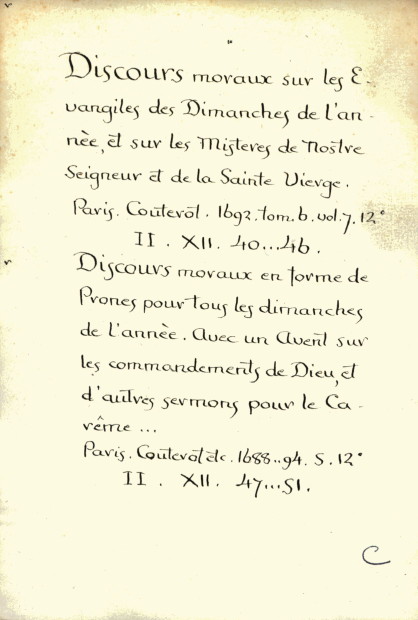 Discours moraux sur les E-
vangiles des Dimanches de l'an-
nèe, et sur les Misteres de Nostre
Seigneur et de la Sainte Vierge.
Paris. Coûterot. 1692. tom. 6. vol. 7. 12°
II. XII. 40...46.
Discours moraux en forme de
Prones pour tous les dimanches
de l'annèe. Avec un Avent sur
les commandements de Dieu, et
d'autres sermons pour le Ca-
rême ...
Paris. Coûterot etc. 1688..94. 5. 12°
II. XII. 47...51.
C